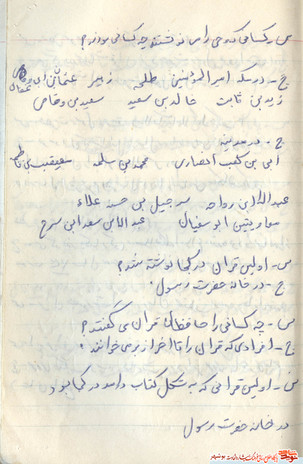 س - کسانی که وحی را می نوشتند چه کسانی بودند؟
ج - در مکه امیرالمؤمنین طلحه زبیر عثمان ابوبکر
زیدبن ثابت خالدبن سعید سعدبن وقاص
ج - در مدینه
ابی بن کعب انصاری محمدبن سلمه معیقب بن
عبدالله ابن رواحه سرجیل بن حسنه علاء
معاویةبن ابوسفیان عبدالله بن سعد ابی سرح
س - اولین قرآن در کجا نوشته شد؟
ج - در خانه حضرت رسول
س - چه کسانی را حافظان قرآن می گفتند؟
ج - افرادی که قرآن را تا آخر از بر می خوانند
س - اولین قرآنی که به شکل کتاب درآمد در کجا بود
در خانه حضرت رسول